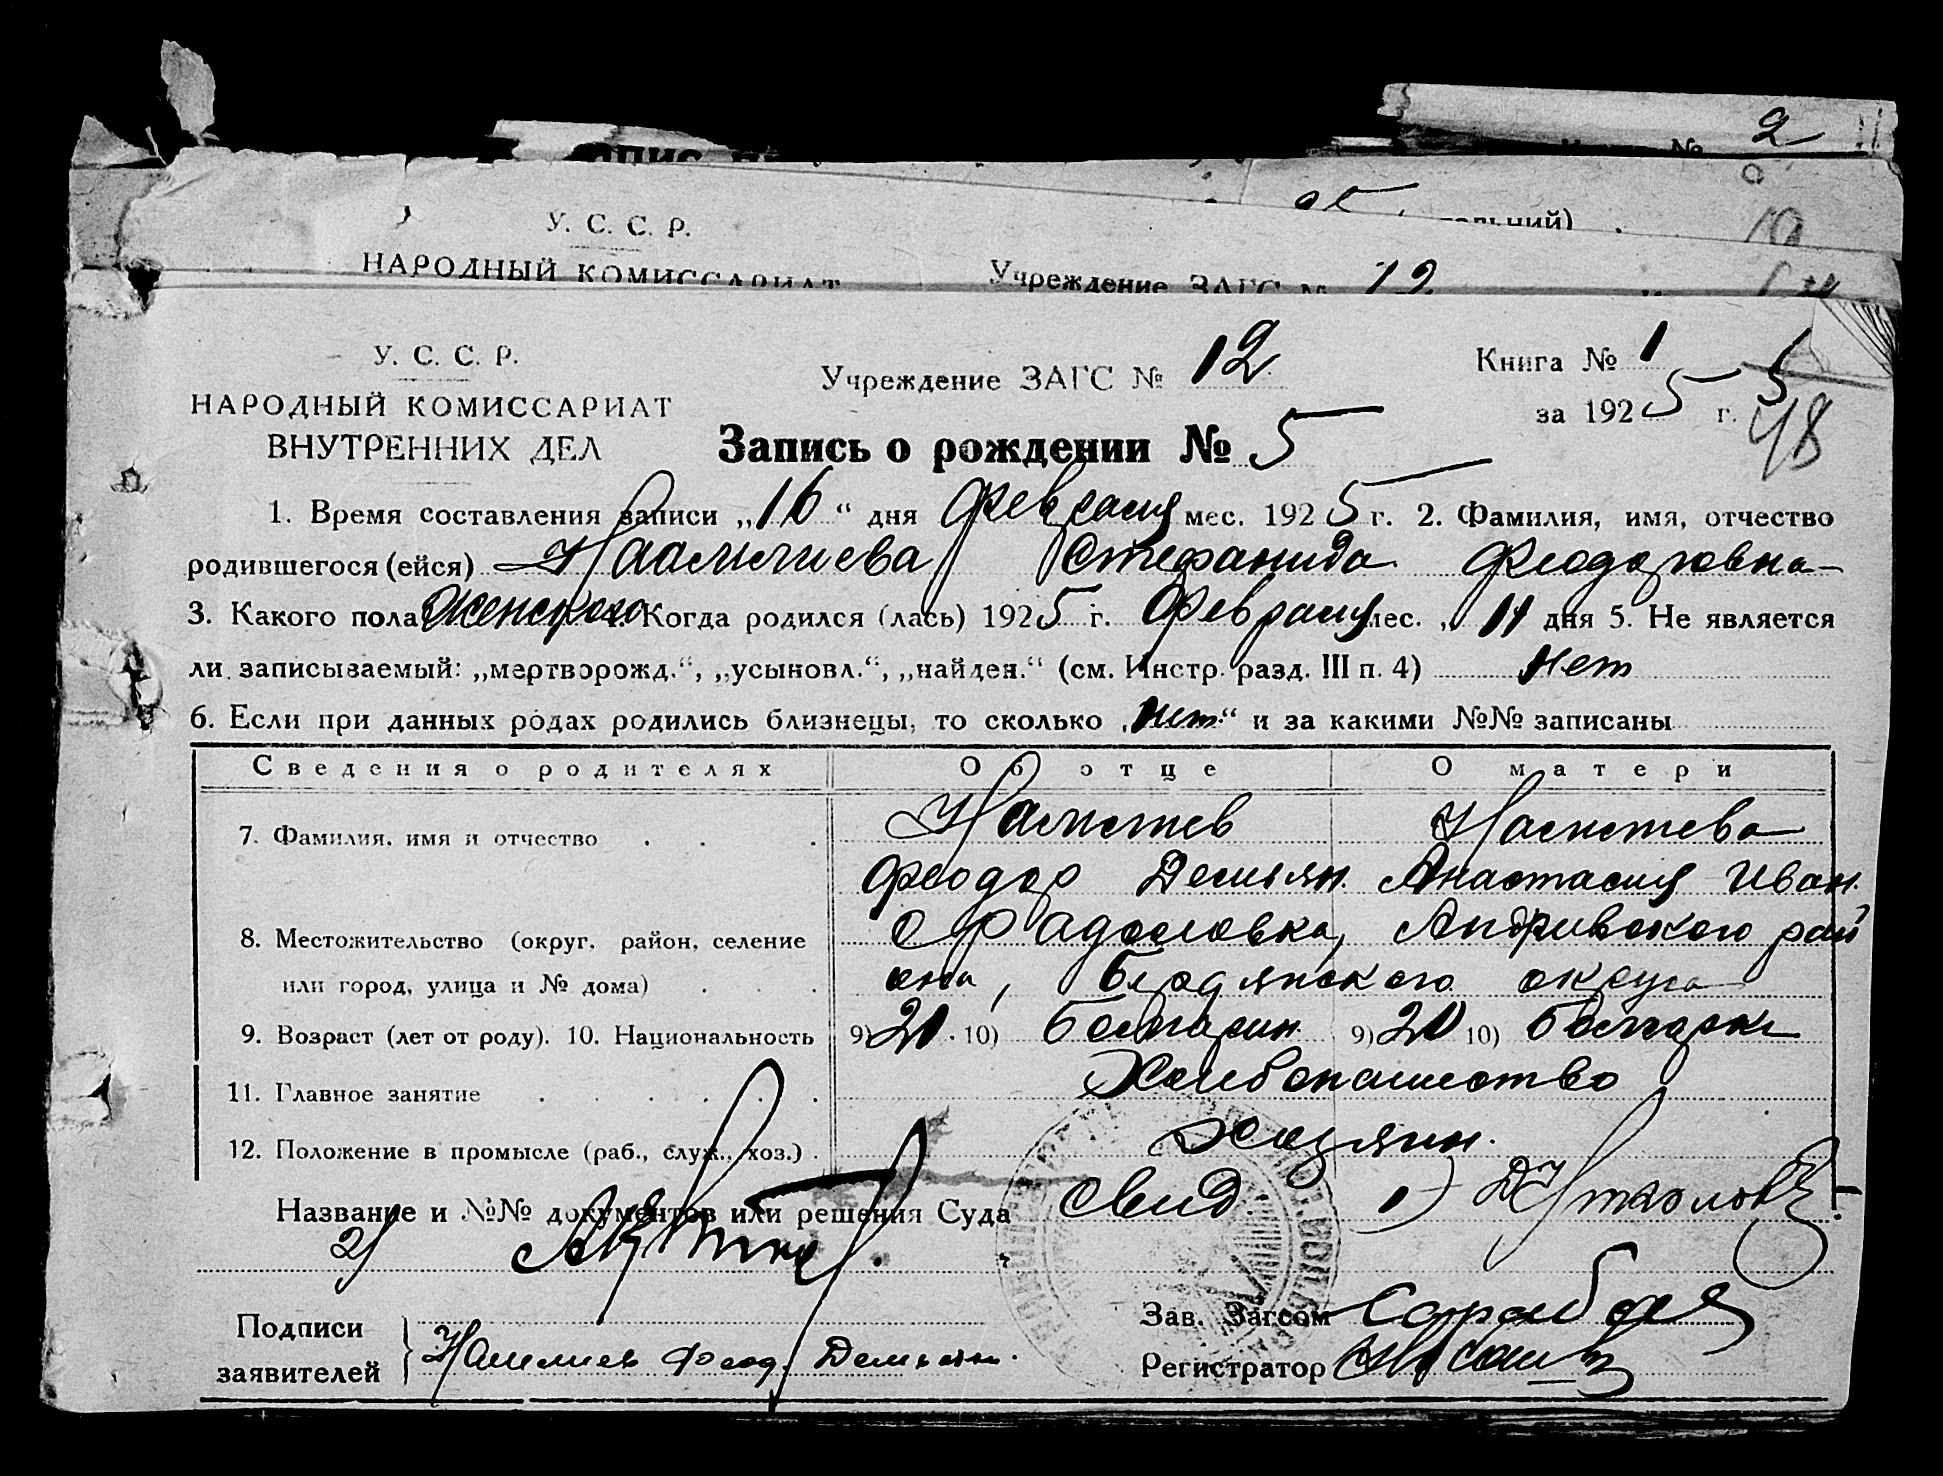 № 2
У. С. С. Р.
НАРОДНЫЙ КОМИССАРИАТ Учреждение ЗАГС № 12
У. С. С. Р.
НАРОДНЫЙ КОМИССАРИАТ
ВНУТРЕННИХ ДЕЛ
Учреждение ЗАГС № 12
Книга № 1 5
за 1925 г. 48
Запись о рождении № 5
1. Время составления записи „16“ дня Февраля мес. 1925 г. 2. Фамилия, имя, отчество
родившегося (ейся) Стефанида Феодоровна
3. Какого пола Женского 4. Когда родился (лась) 1925 г. Февраля мес. „11 дня 5. Не является
ли записываемый: „мертворожд.“, „усыновл.“, „найден.“ (см. Инстр. разд. III п. 4) нет
6. Если при данных родах родились близнецы, то сколько „нет“ и за какими №№ записаны
Сведения о родителях Об отце О матери
7. Фамилия, имя и отчество
Феодор Демьян. Анастасия Иван.
8. Местожительство (округ, район, селение
или город, улица и № дома) она, Бердянского округа
9. Возраст (лет от роду). 10. Национальность 9) 20. 10) Болгарин 9) 20 10) Болгарк
11. Главное занятие Хлебопашество
12. Положение в промысле (раб., служ., хоз.) Хозяин.
Название и №№ документов или решения Суда Свид. 1)
2)
Подписи
заявителей Феод. Демьян.
Зав. Загсом
Регистратор